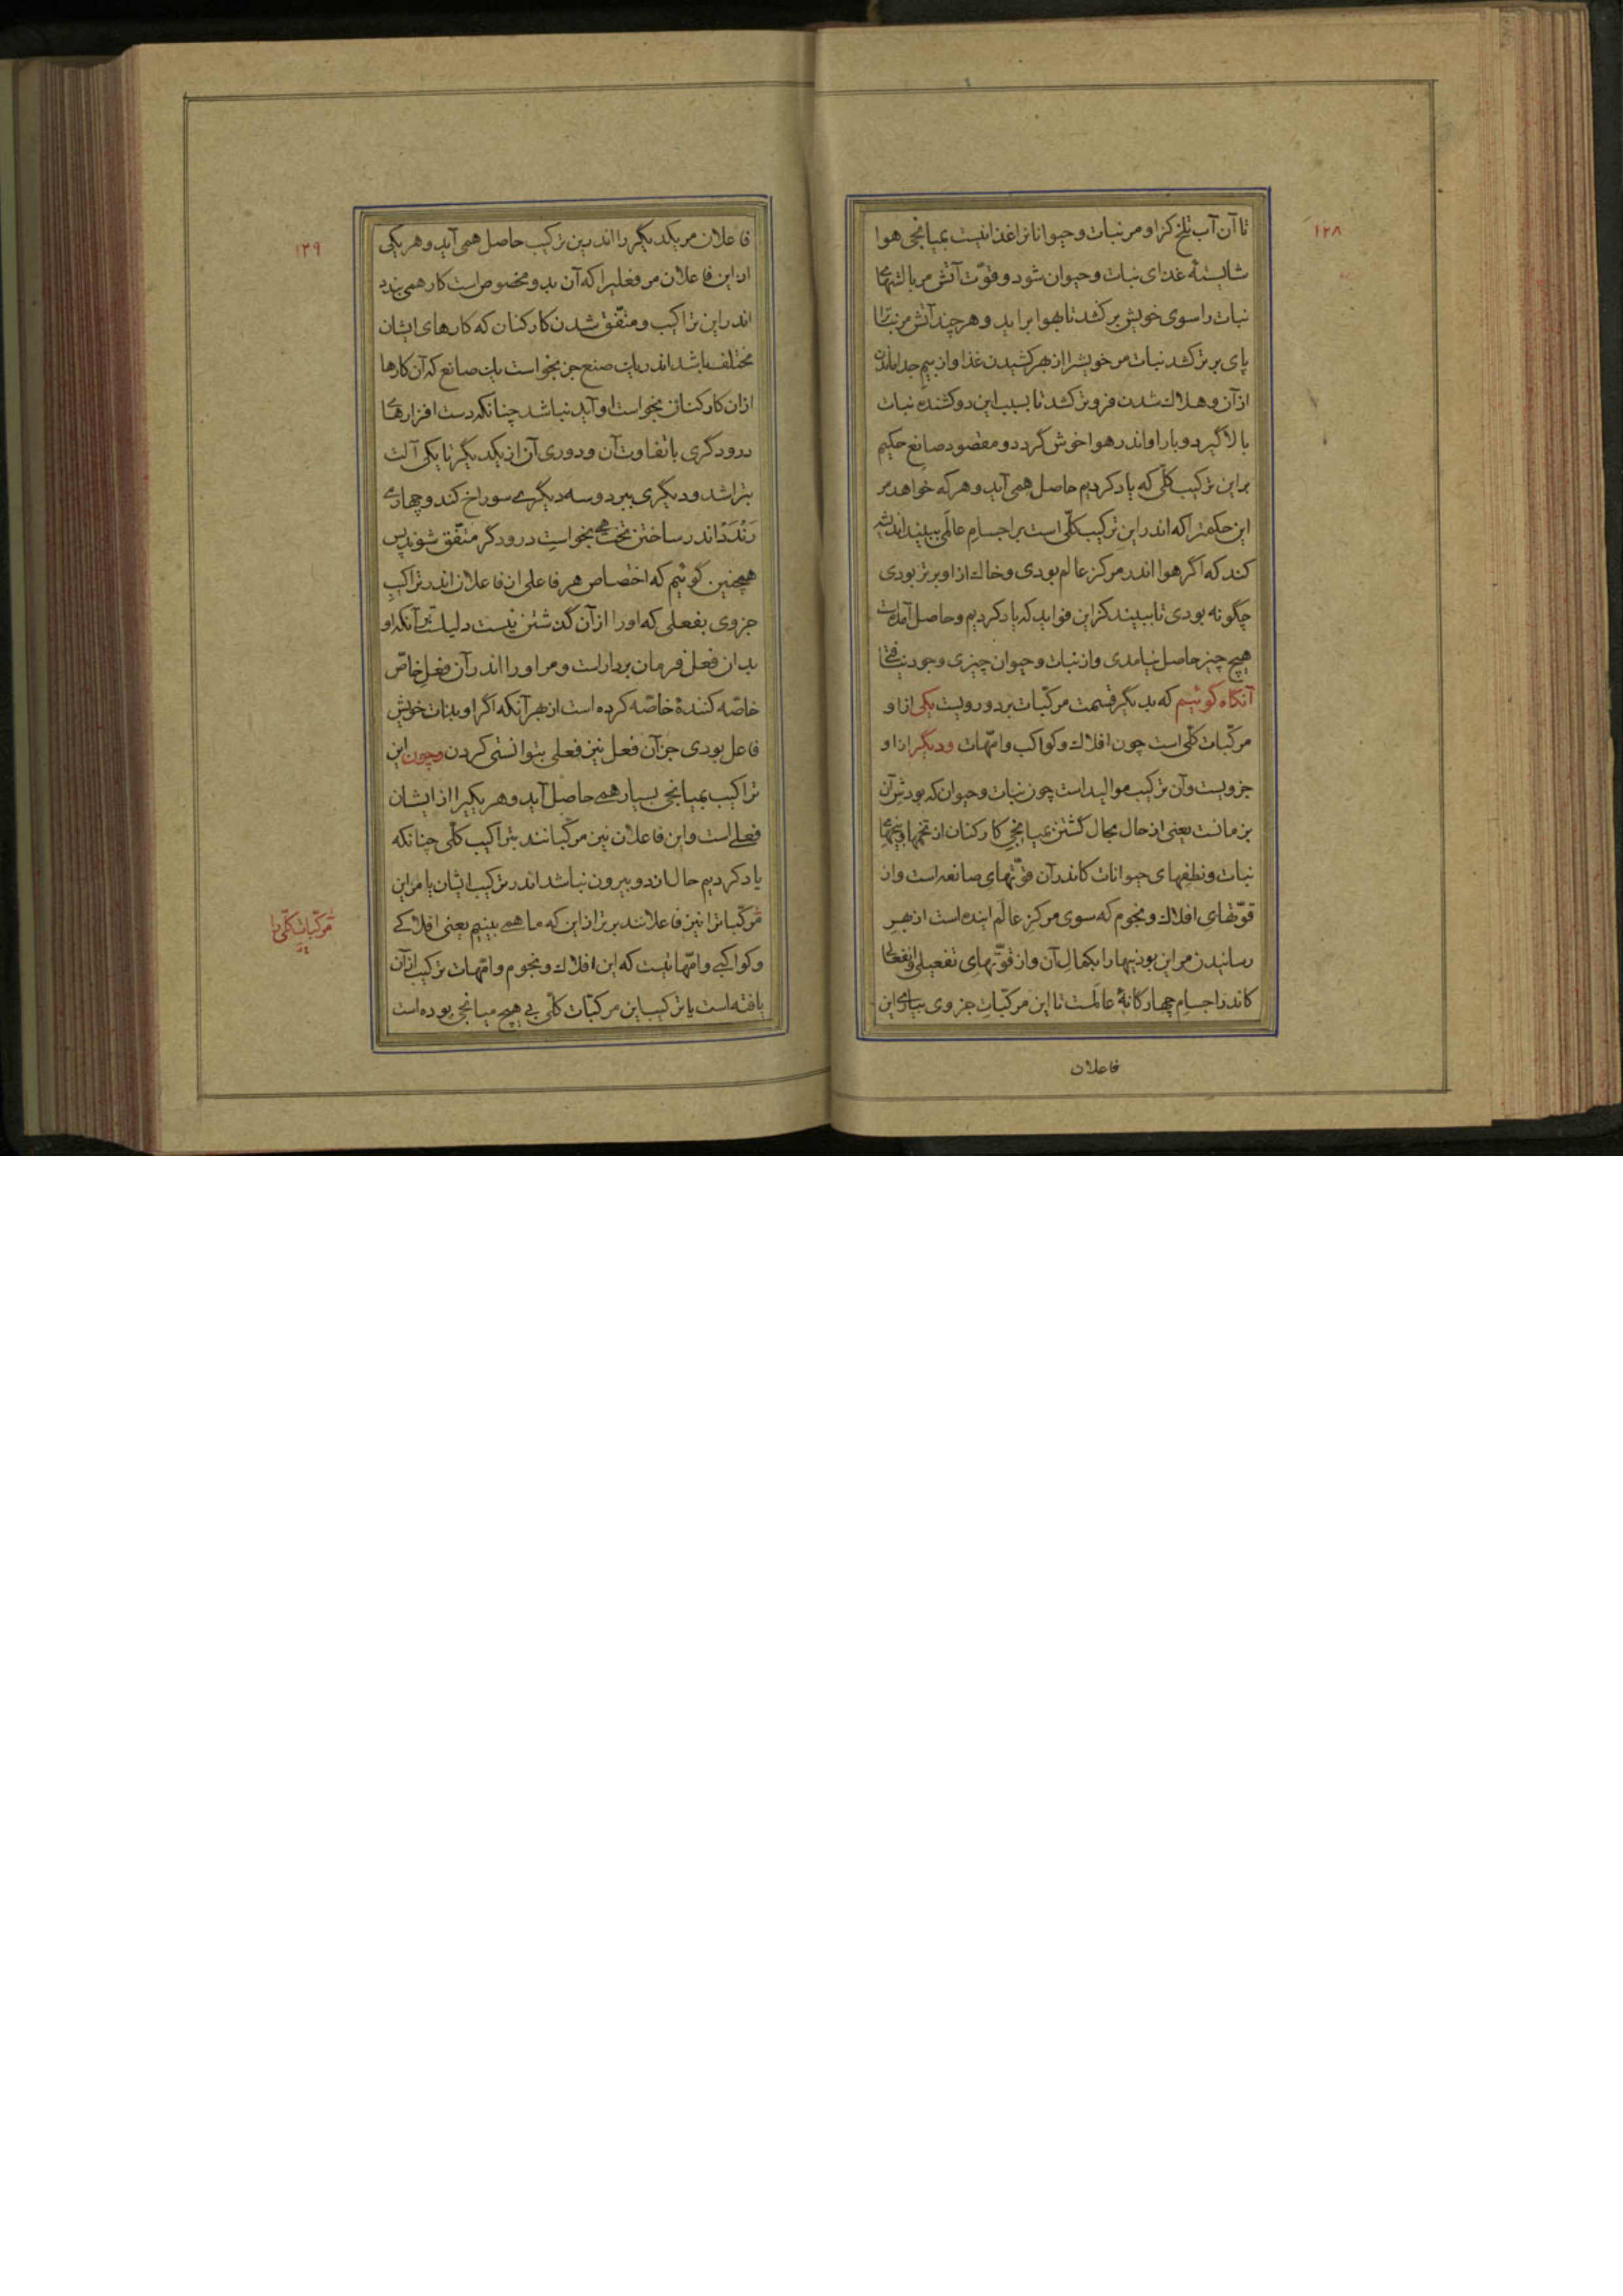 ۱۲۸
تا آن آب تلخ کزاو مر نبات و حیوانانرا غذا نیست بمیانجی هوا
شایستهٔ غذای نبات و حیوان شود و قوّت آتش مر بالشهای
نبات را سوی خویش برکشد تا بهوا براید و هر چند آتش مر نباترا
پای برتر کشد نبات مر خویشرا از بهر کشیدن غذا و از بیم جدا ماندن
ازآن و هلاك شدن فروتر کشد تا بسبب این دو کشنده نبات
بالا گیرد و بار او اندر هوا خوش گردد و مقصود صانع حکیم
براین ترکیب کلّی که یاد کردیم حاصل همی آید و هر که خواهد مر
این حکمترا که اندر این ترکیب کلّی است بر اجسامِ عالَمی ببیند اندیشه
کند که اگر هوا اندر مرکز عالم بودی و خاك از او برتر بودی
چگونه بودی تا ببیند کزاین فواید که یاد کردیم و حاصل آمدست
هیچ چیز حاصل نیامدی و از نبات و حیوان چیزی وجود نیافتی
آنگاه گوئیم که بدیگر قسمت مرکّبات بر دو رویست یکی از او
مرکّبات کلّی است چون افلاك و کواکب و امّهات و دیگر از او
جزویست و آن ترکیب موالید است چون نبات و حیوان که بودش آن
بزمانست یعنی از حال بحال گشتن بمیانجی کارکنان از تخمها و بیخهای
نبات و نطفهای حیوانات کاندر آن قوّتهای صانعه است و از
قوّتهایِ افلاك و نجوم که سوی مرکزِ عالَم اینده است از بهرِ
رسانیدن مر این بودنیها را بکمالِ آن و از قوّتهایِ تفعیلی و انفعالی
کاندر اجسامِ چهارگانهٔ عالَمست تا این مرکّباتِ جزوی بیاری این
فاعلان
۱۲۹
فاعلان مر یکدیگر را اندرین ترکیب حاصل همی آید و هر یکی
از این فاعلان مر فعلیرا که آن بدو مخصوص است کار همی بندد
اندر این تراکیب و متّفق شدن کارکنان که کارهای ایشان
مختلف باشد اندر یك صنع جز بخواست یك صانع که آن کارها
از آن کارکنان بخواست او آید نباشد چنانکه دست افزارهای
درودگری با تفاوت آن و دوری آن از یکدیگر تا یکی آلت
بتراشد و دیگری ببرد و سه دیگری سوراخ کند و چهاری
رَنْدَد اندر ساختن تخت همی بخواستِ درودگر متّفق شوند پس
همچنین گوئیم که اختصاص هر فاعلی از فاعلان اندر تراکیبِ
جزوی بفعلی که او را از آن گذشتن نیست دلیلست بر آنکه او
بدان فعل فرمان بردار است و مر او را اندر آن فعلِ خاصّ
خاصّه کنندهٔ خاصّه کرده است از بهر آنکه اگر او بذات خویش
فاعل بودی جز آن فعل نیز فعلی بتوانستی کردن و چون این
تراکیب بمیانجی بسیار همی حاصل آید و هر یکیرا از ایشان
فعلی است و این فاعلان نیز مرکّبانند بتراکیب کلّی چنانکه
یاد کردیم حال از دو بیرون نباشد اندر ترکیب ایشان یا مر این
مرکّباترا نیز فاعلانند برتر از این که ما همی بینیم یعنی افلاکی
و کواکبی و امّهاتیست که این افلاك و نجوم و امّهات ترکیب از آن
یافته است یا ترکیب این مرکّبات کلّی بی هیچ میانجی بوده است
مرکّبات کلّی را